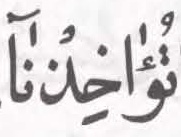 تُؤَاخِذْنَآ